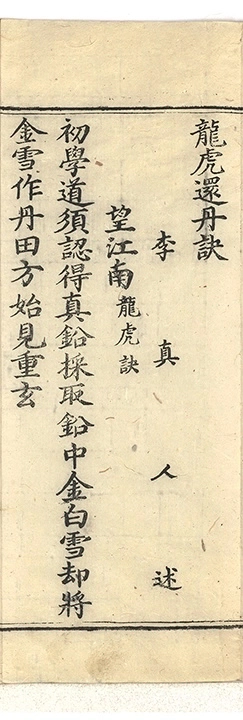 龍虎還丹訣
李真人述
望江南龍虎訣
初學道須認得真鉛採取鉛中金白雪却將
金雪作丹田方始見重玄